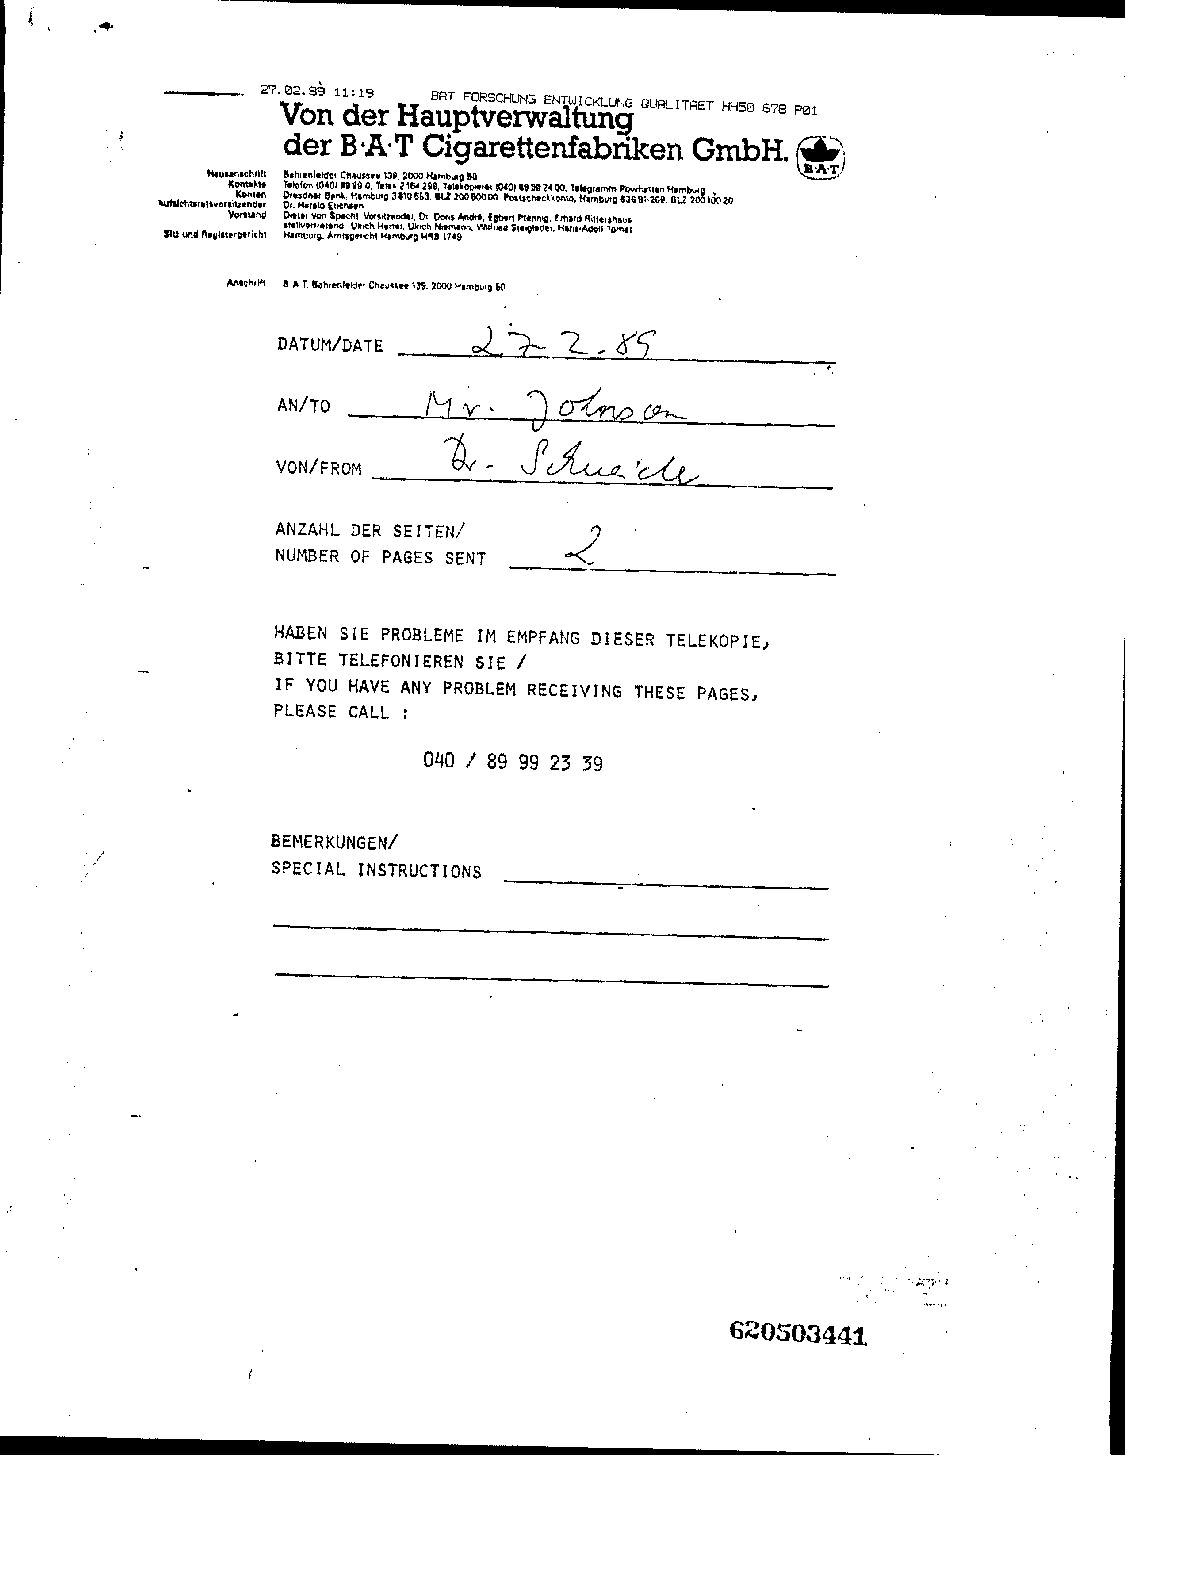 27.02.89 11:19 BAT FORSCHUNG ENTWICKLUNG QUALITAET HH50 678 P01
Von der Hauptverwaltung
der B·A·T Cigarettenfabriken GmbH.
B·A·T
Hausanschrift Bahrenfelder Chaussee 139, 2000 Hamburg 50
Kontakte Telefon (040) 89 99 0, Telex 2164 298, Telekopierer (040) 89 39 24 00, Telegramm Powhattan Hamburg
Konten Dresdner Bank, Hamburg 3810 663, BLZ 200 800 00 Postscheckkonto, Hamburg 636 91-209, BLZ 200 100 20
Aufsichtsratsvorsitzender Dr. Harald Erichsen
Vorstand Dieter von Specht Vorsitzender, Dr. Doris André, Egbert Pfennig, Erhard Rittershaus
stellvertretend Ulrich Herter, Ulrich Niemann, Steigleder, Hans-Adolf
Sitz und Registergericht Hamburg, Amtsgericht Hamburg HRB 1749
Anschrift B·A·T, Bahrenfelder Chaussee 139, 2000 Hamburg 50
DATUM/DATE 27 2.89
AN/TO Mr. Johnson
VON/FROM Dr.
ANZAHL DER SEITEN/
NUMBER OF PAGES SENT 2
HABEN SIE PROBLEME IM EMPFANG DIESER TELEKOPIE,
BITTE TELEFONIEREN SIE /
IF YOU HAVE ANY PROBLEM RECEIVING THESE PAGES,
PLEASE CALL :
040 / 89 99 23 39
BEMERKUNGEN/
SPECIAL INSTRUCTIONS
620503441